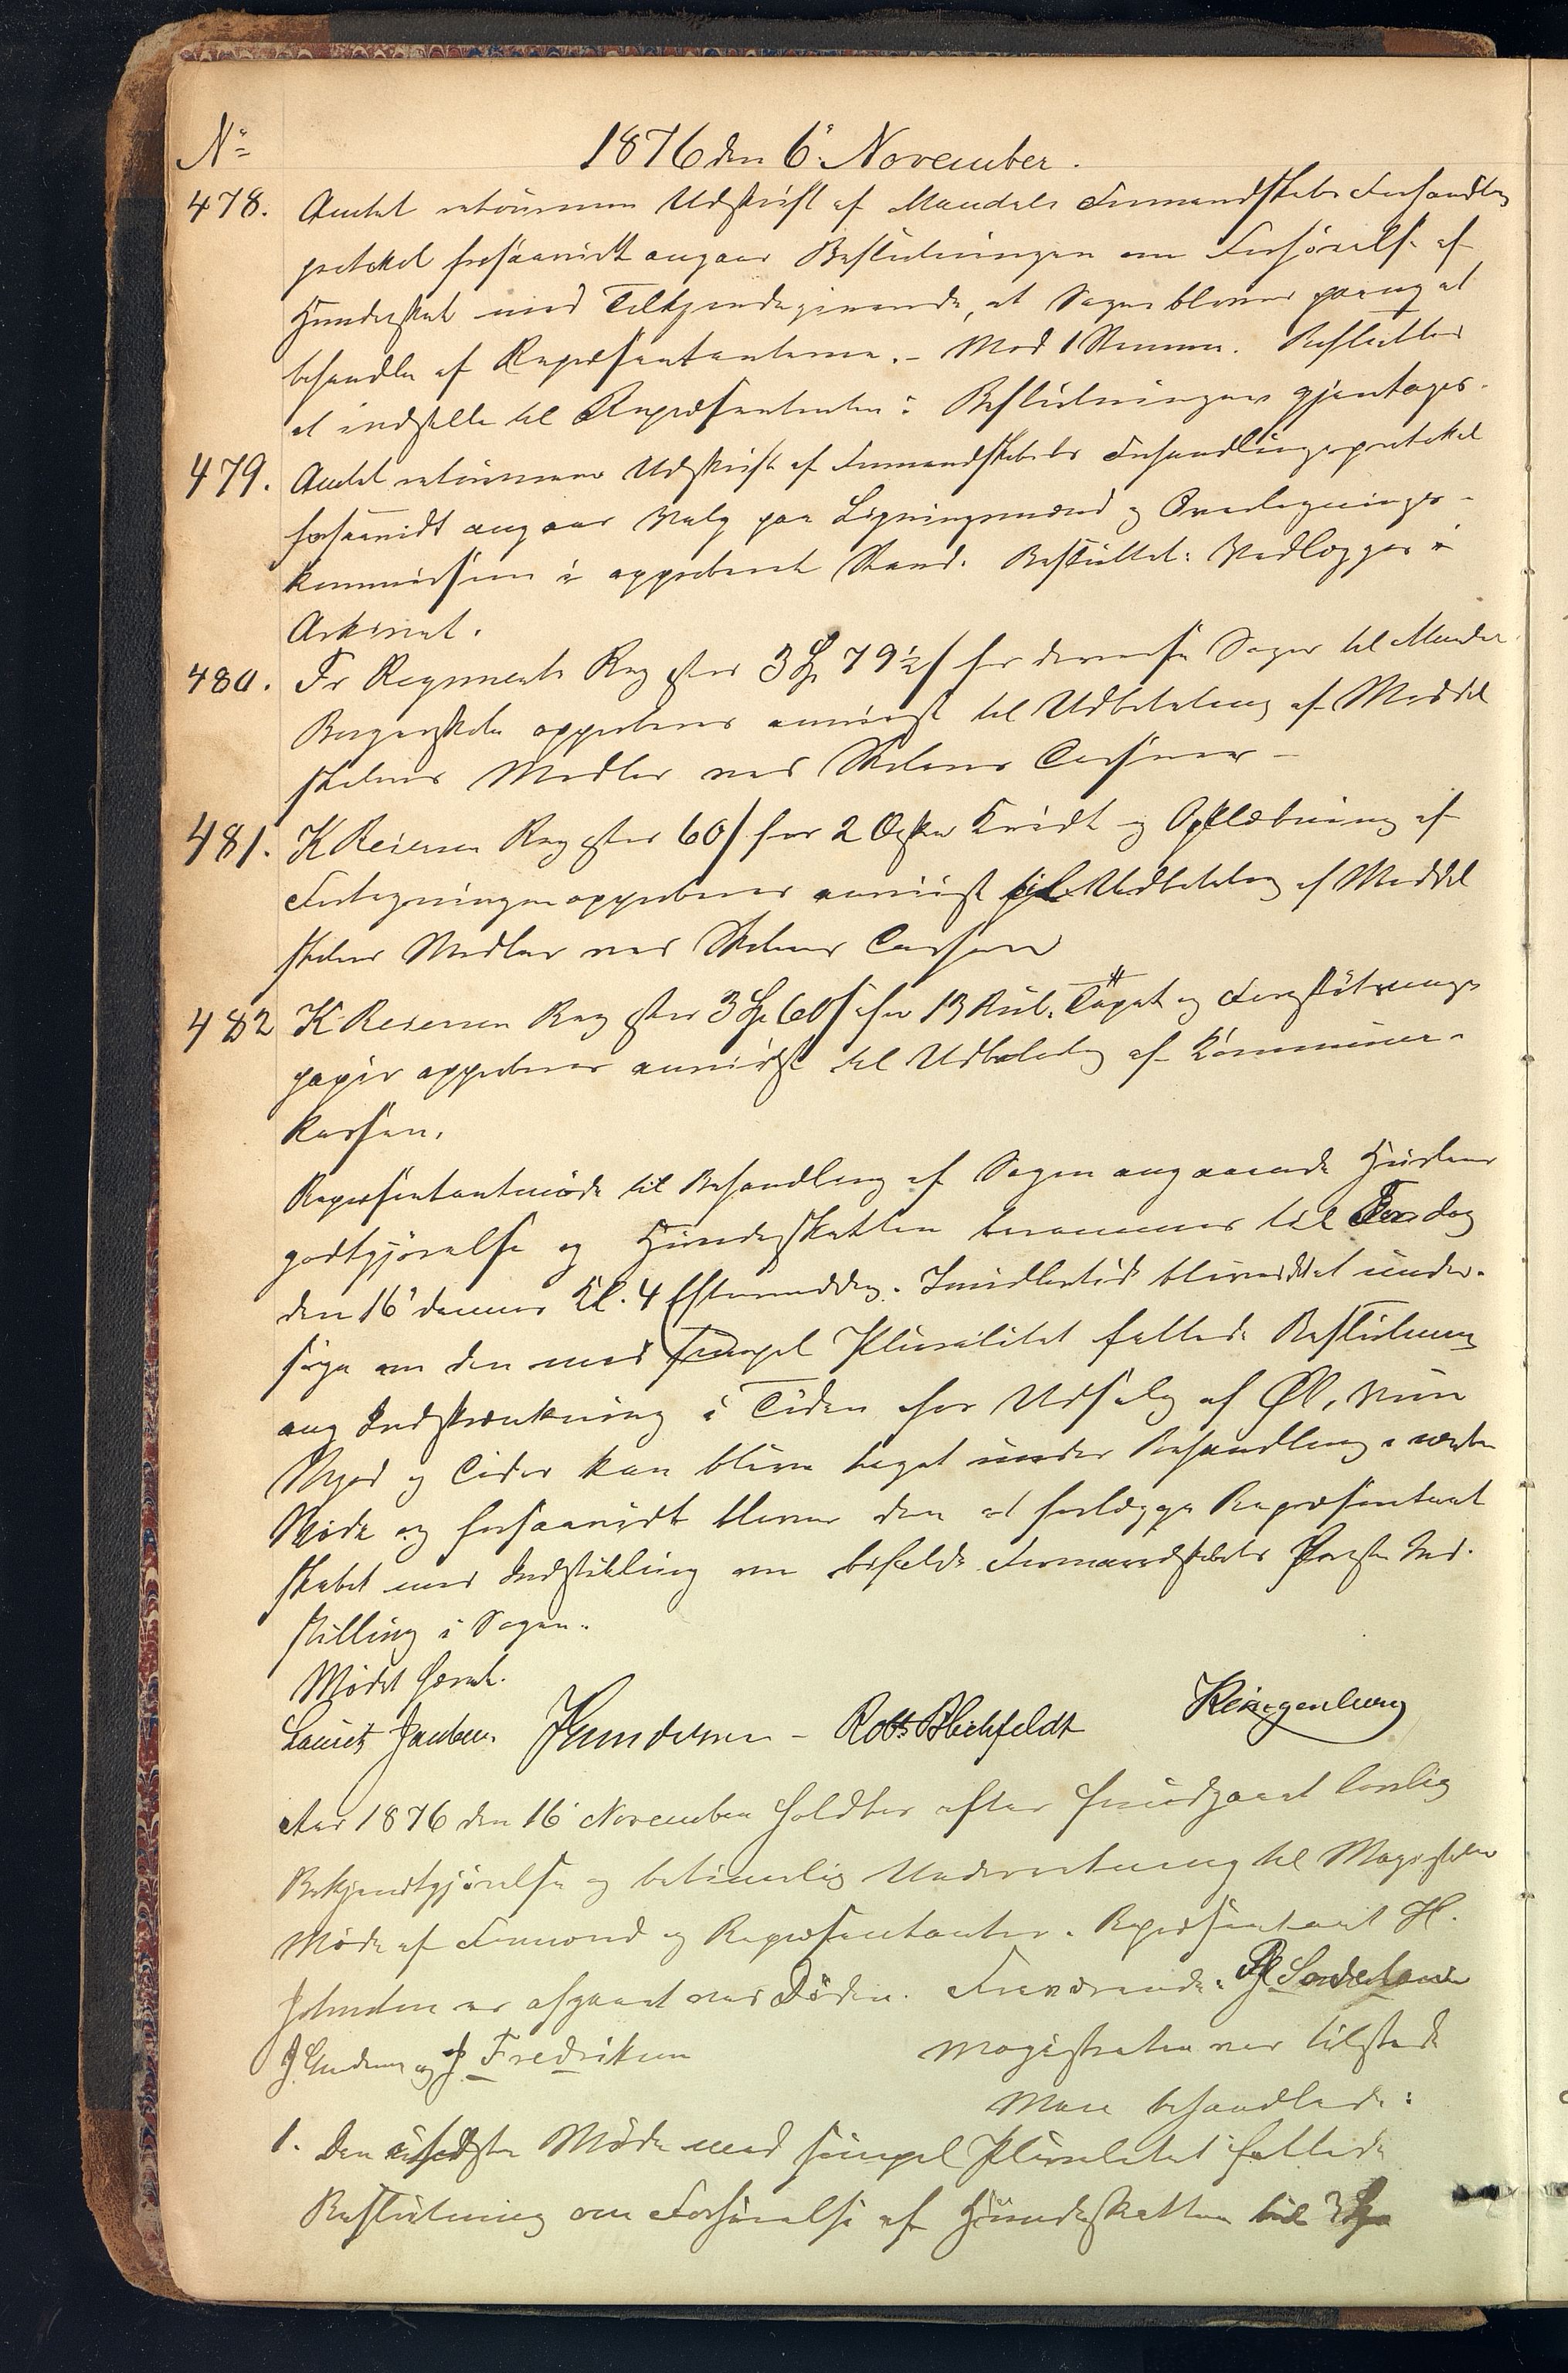 No
1876 den 6' November.
478. Amtet returnerer Udskrift af Mandals Formandskabs Forhandlings
protokol forsaavidt angaar Beslutningen om Forhøielse af
Hundeskat med Tilkjendegivende, at Sagen bliver paany at
behandle af Repræsentanterne. - Mod 1 Stemme. Besluttet
at indstille til Repræsentanten: Beslutningen gjentages.
479. Amtet returnerer Udskrift af Formandskabets Forhandlingsprotokol
forsaavidt angaar Valg paa Ligningsmænd og Overlignings-
kommission i approberet Stand. Besluttet: Vedlægges i
Arkivet.
480. Fr Reg stor 3 Sp 79½ s for diverse Sager til Mandals
Borgerskole approberes anviist til Udbetaling af Middel
skolens Midler ved Skolens Casserer -
481. K Reiersen Reg stor 60 s for 2 Æsker Kridt og Opklæbning af
Fortegningen approberes anviist til Udbetaling af Middel
skolens Midler ved Skolens Casserer
482 K Reiersen Reg stor 3 Sp 60 s for 13 Rul. Tapet og
papir approberes anviist til Udbetaling af Kommune-
kassen.
Repræsentantmøde til Behandling af Sagen angaaende
godtgjørelse og Hundeskatten berammes til Torsdag
den 16' dennes Kl. 4 Eftermiddag. Imidlertid bliver det under-
søge om den med simpel Pluralitet fattede Beslutning
ang Indskrænkning i Tiden for Udsalg af Øl, Viin
Mjød og Cider kan blive taget under Behandling i næste
Møde og forsaavidt bliver den at forelægge Repræsentant
skabet med Indstilling om bifalde Formandskabets Ind-
stilling i Sagen.
Mødet hævet.
Lauritz Jacobsen JGundersen - Robt Blichfeldt KRingenberg
Aar 1876 den 16' November holdtes efter forudgaaet lovlig
Bekjendtgjørelse og betimelig Underretning til Magistraten
Møde af Formænd og Repræsentanter. Repræsentant H.
er afgaaet ved Døden. Fraværende:
J. og J Fredriksen Magistraten var tilstede
Man behandlede:
1. Den i sidste Møde med simpel Pluralitet fattede
Beslutning om Forhøielse af Hundeskatten til 3 Sp